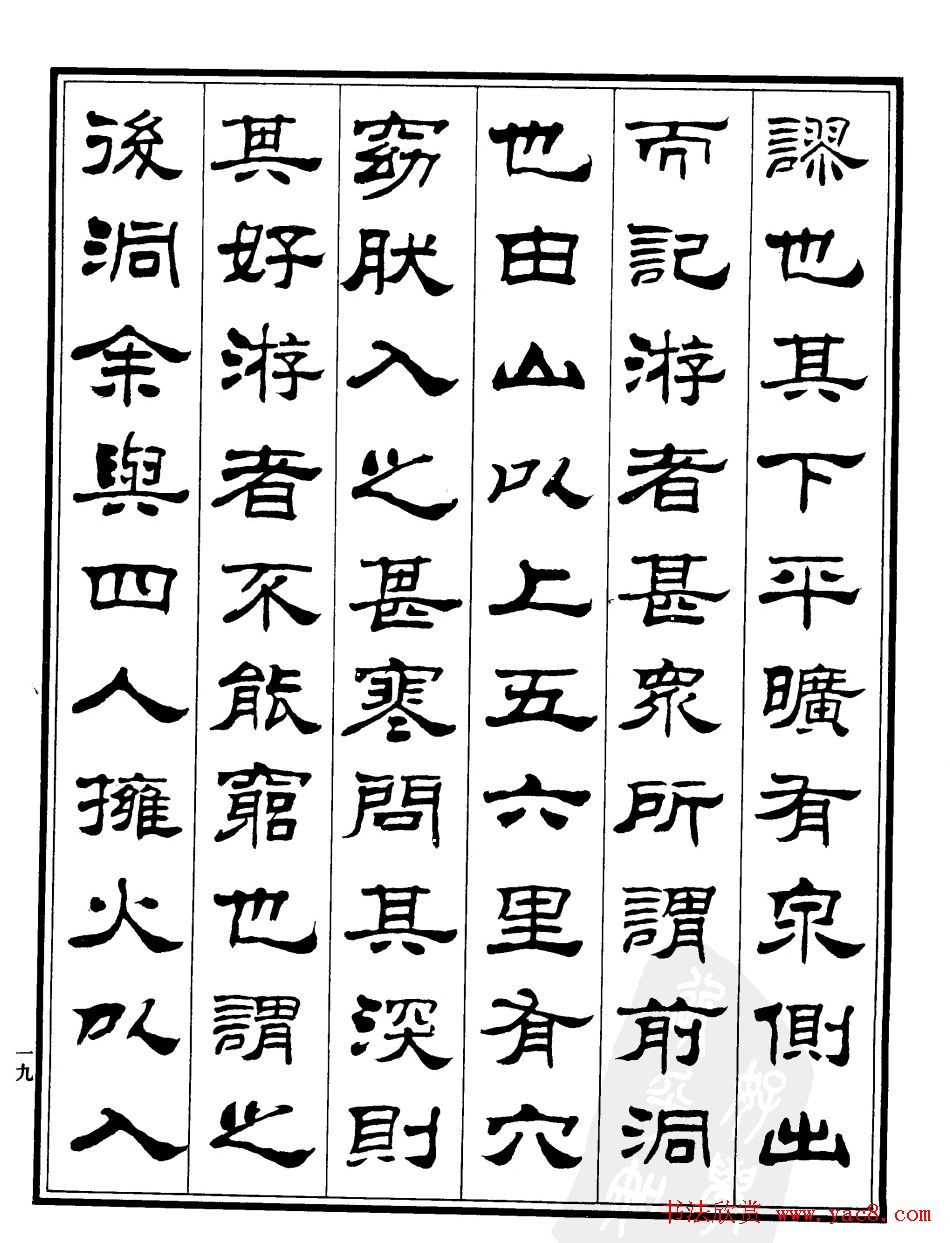 謬也其下平曠有泉側出
而記游者甚眾所謂前洞
也由山以上五六里有穴
窈肰入之甚寒問其深則
其好游者不能窮也謂之
後洞余與四人擁火以入
一九
书法欣赏 www.yac8.com